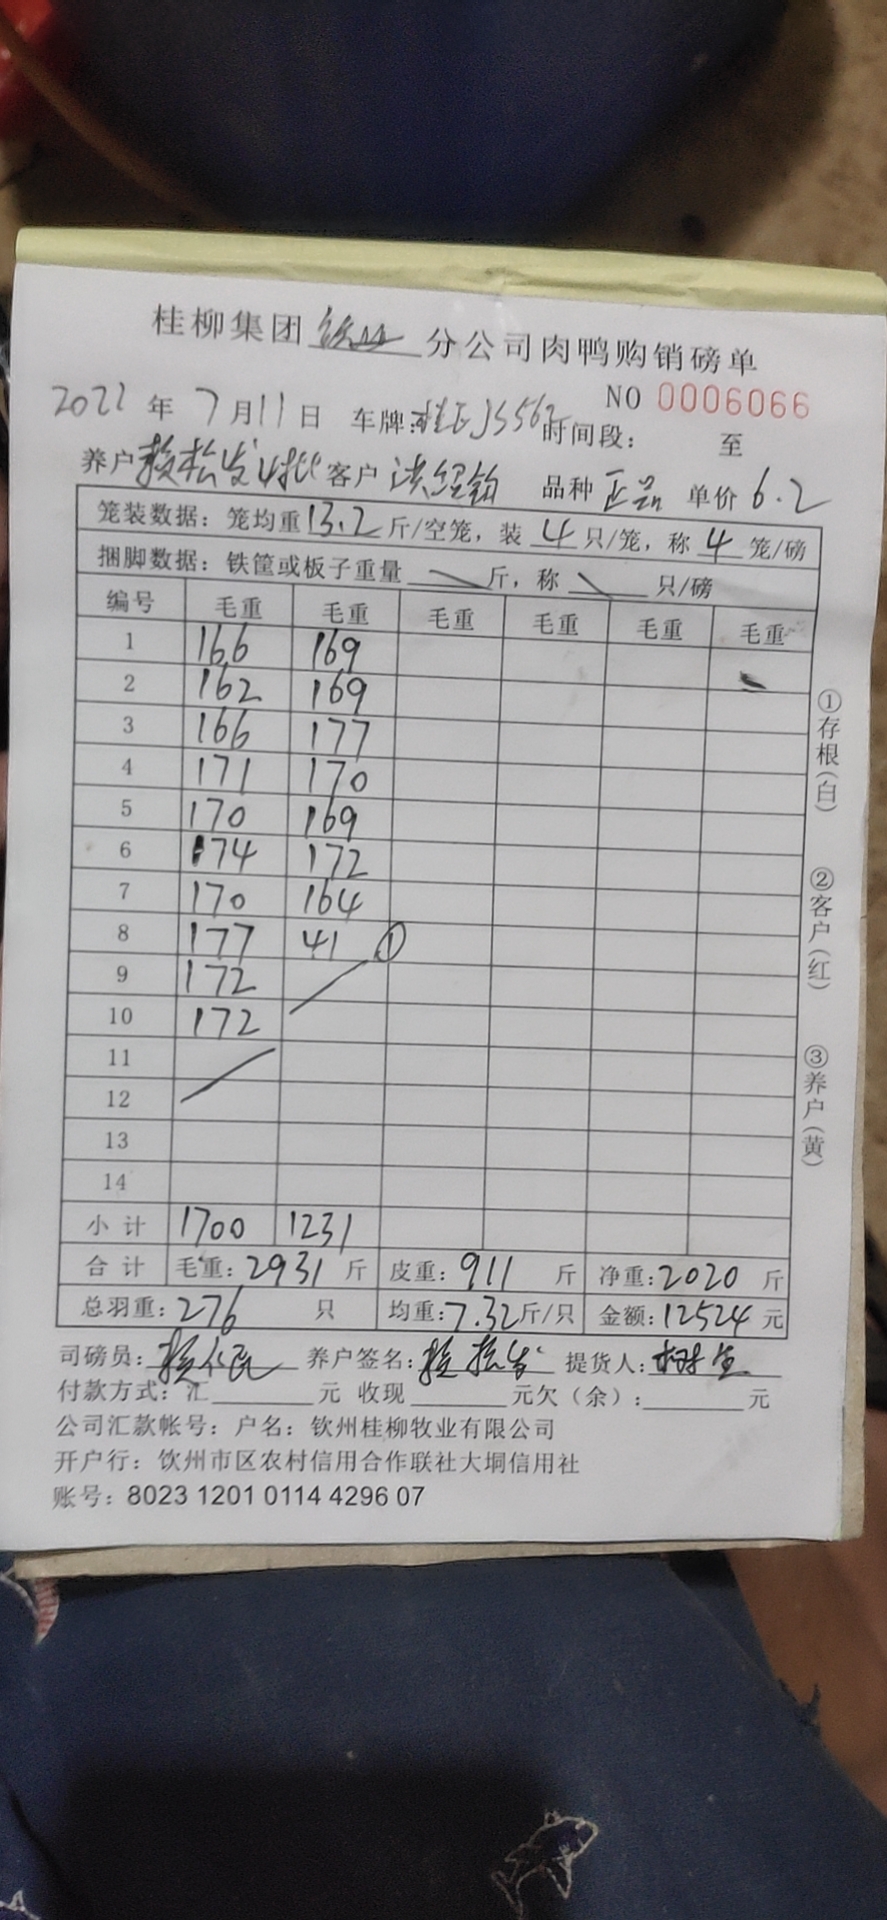 桂柳集团 分公司肉鸭购销磅单
NO 0006066
2022 年 7 月 11 日 车牌: 时间段: 至
养户 赖松发 4批 客户 洪 品种 正品 单价 6.2
笼装数据: 笼均重 13.2 斤/空笼, 装 4 只/笼, 称 4 笼/磅
捆脚数据: 铁筐或板子重量 斤, 称 只/磅
编号 毛重 毛重 毛重 毛重 毛重 毛重
1 166 169
2 162 169
3 166 177
4 171 170
5 170 169
6 174 172
7 170 164
8 177 41 ①
9 172
10 172
11
12
13
14
小计 1700 1231
合计 毛重: 2931 斤 皮重: 911 斤 净重: 2020 斤
总羽重: 276 只 均重: 7.32 斤/只 金额: 12524 元
司磅员: 养户签名: 赖松发 提货人:
付款方式: 汇 元 收现 元欠(余): 元
公司汇款帐号: 户名: 钦州桂柳牧业有限公司
开户行: 饮州市区农村信用合作联社大垌信用社
账号: 8023 1201 0114 4296 07
①存根(白)
②客户(红)
③养户(黄)